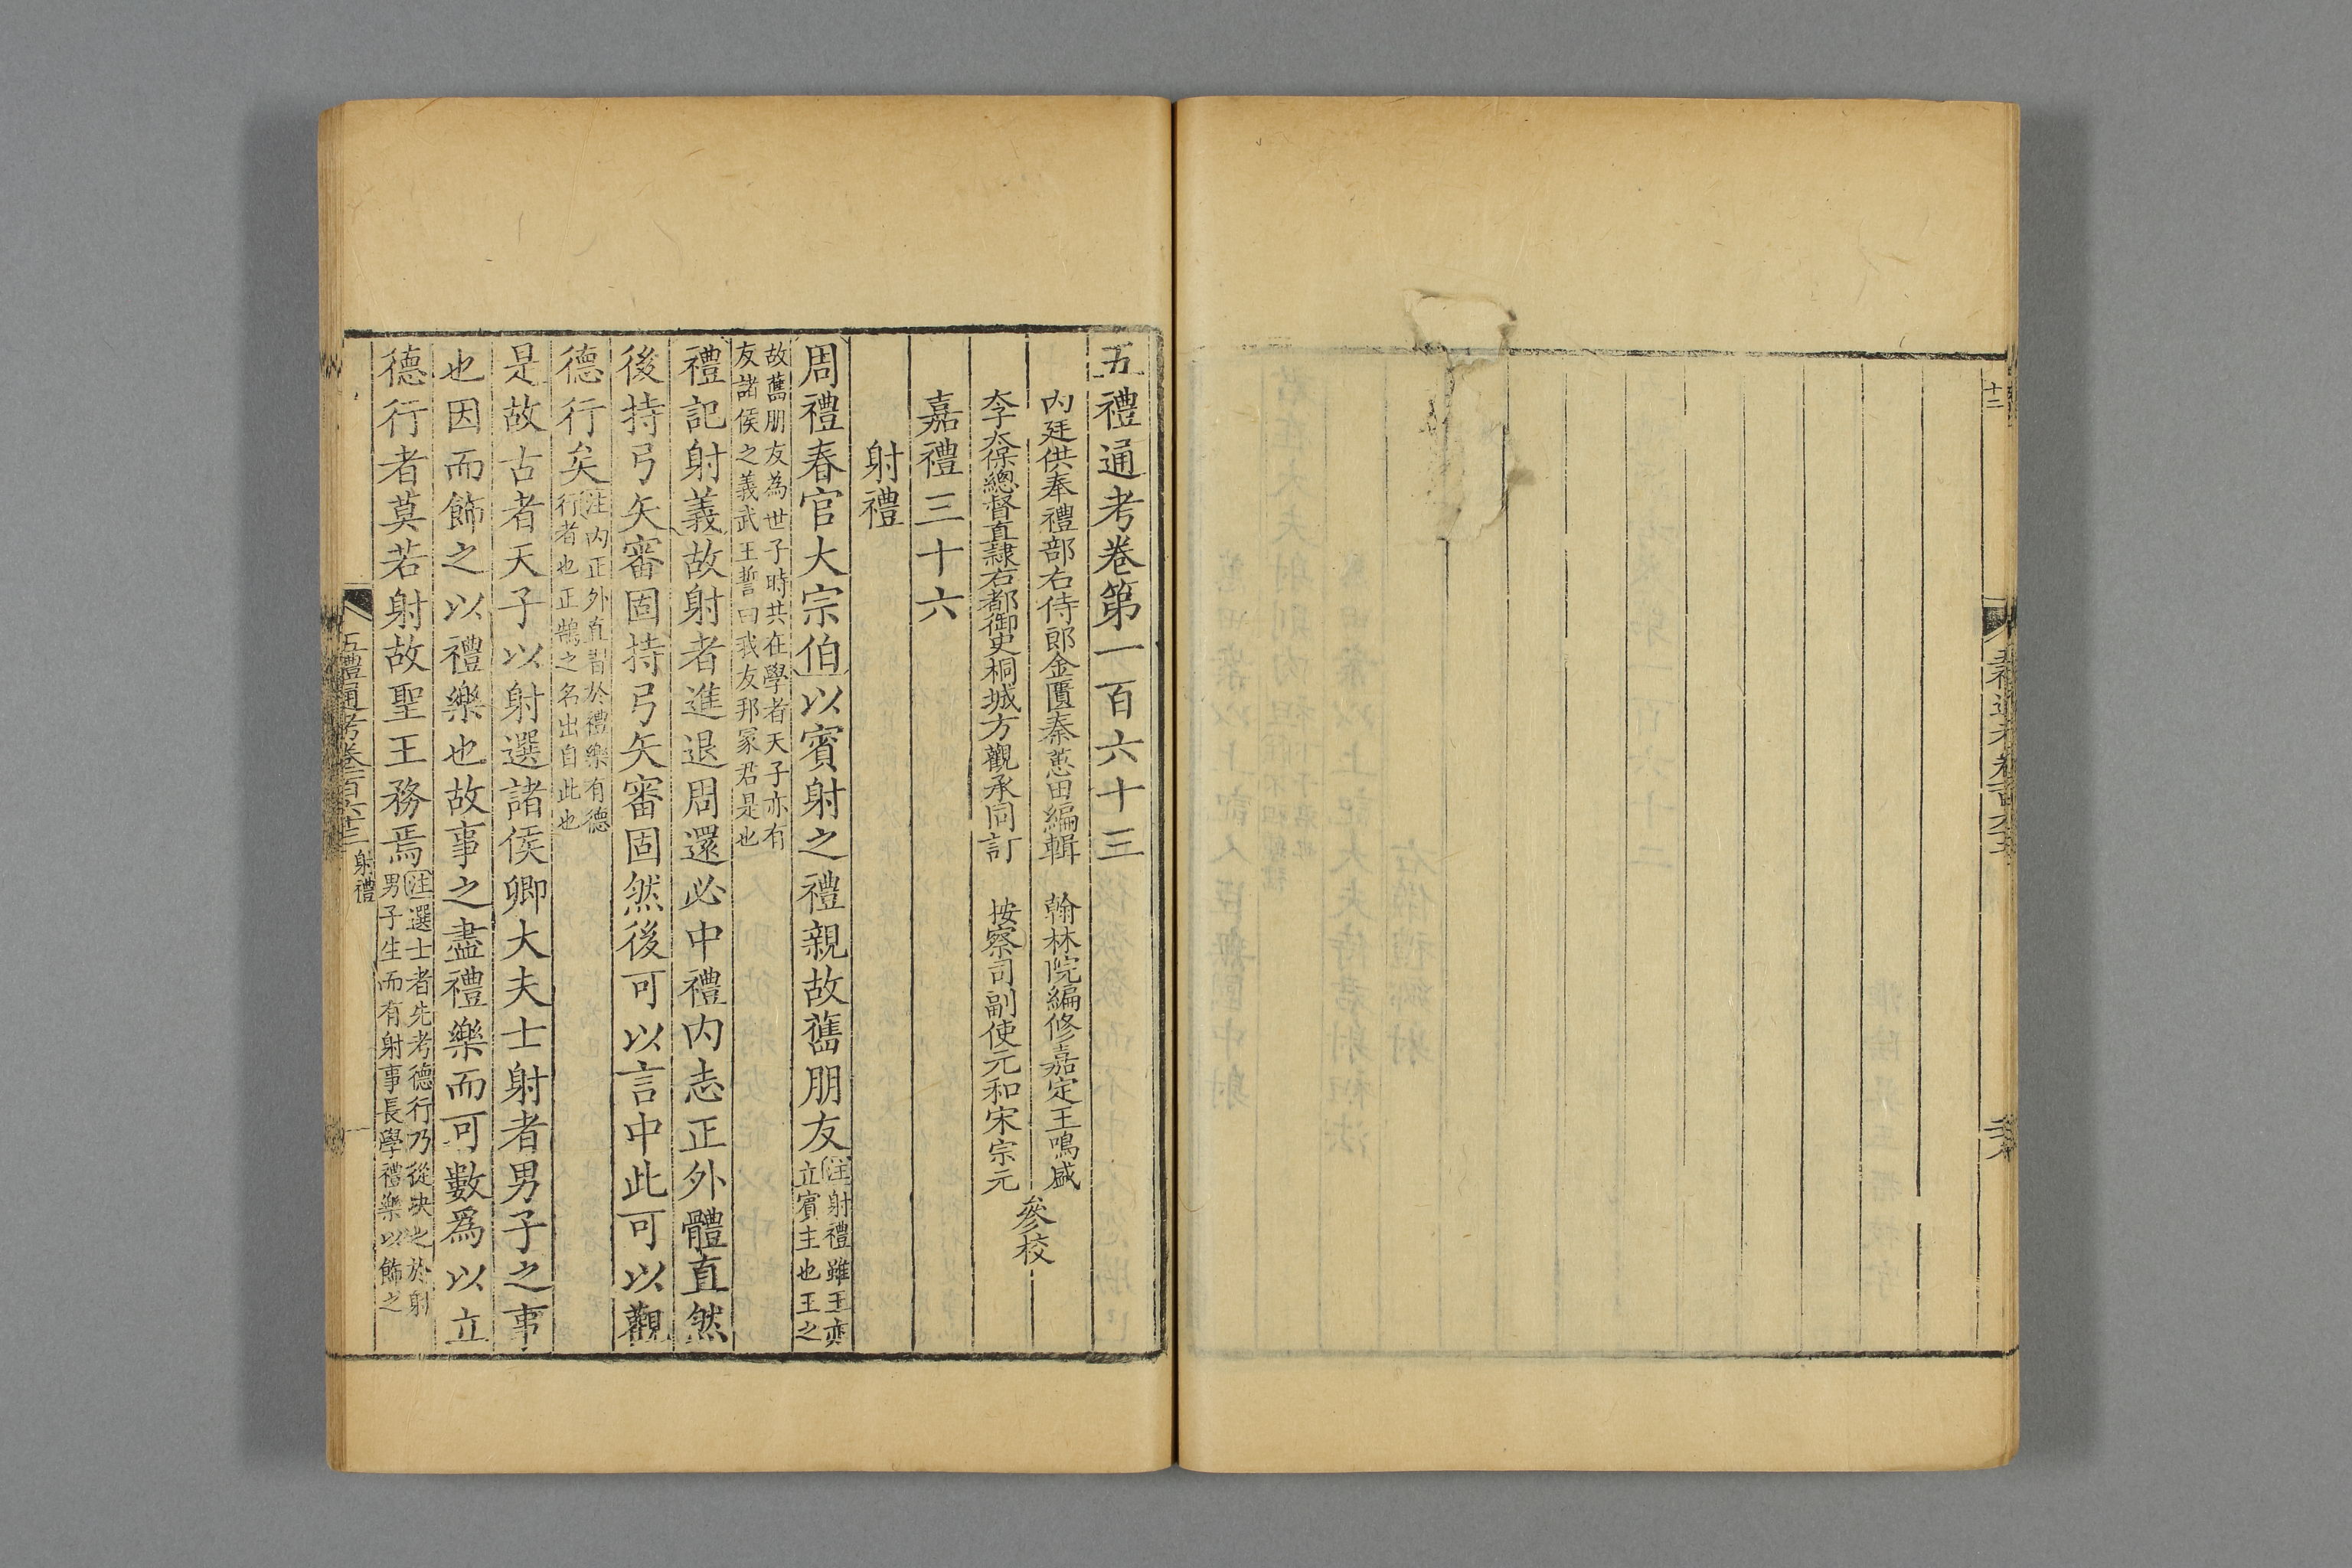 五禮通考卷第一百六十三
內廷供奉禮部右侍郎金匱秦蕙田編輯　翰林院編修嘉定王鳴盛
太保總督直隸右都御史桐城方觀承同訂　按察司副使元和宋宗元
參校
嘉禮三十六
射禮
周禮春官大宗伯以賓射之禮親故舊朋友
注射禮雖王亦
立賓主也王之
故舊朋友為世子時共在學者天子亦有
友諸侯之義武王誓曰我友邦冢君是也
禮記射義故射者進退周還必中禮內志正外體直然
後持弓矢審固持弓矢審固然後可以言中此可以觀
德行矣
注內正外直習於禮樂有德
行者也正鵠之名出自此也
是故古者天子以射選諸侯卿大夫士射者男子之事
也因而飾之以禮樂也故事之盡禮樂而可數爲以立
德行者莫若射故聖王務焉
注選士者先考德行乃從決之於射
男子生而有射事長學禮樂以飾之
五禮通考卷一百六十三
射禮
一